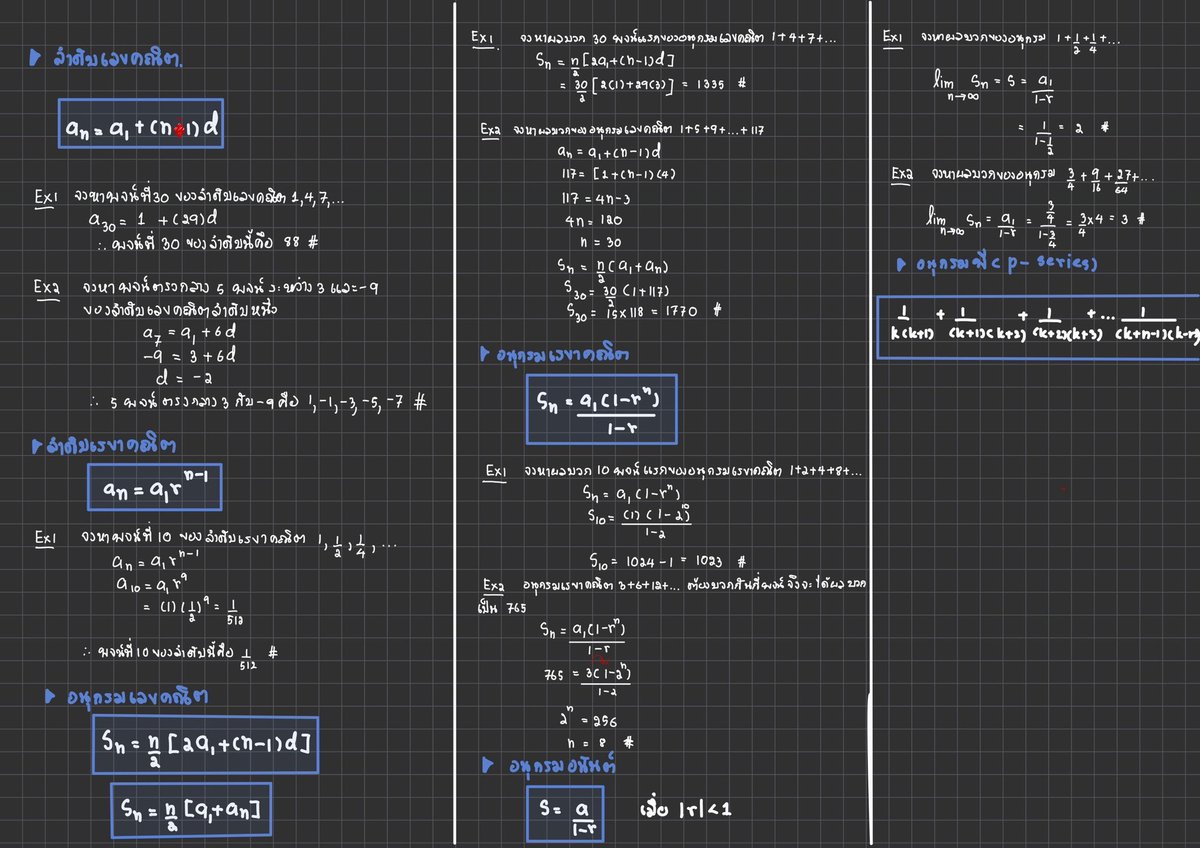 ▶ ลำดับเลขคณิต.
aₙ = a₁ + (n-1)d
Ex1 จงหาพจน์ที่ 30 ของลำดับเลขคณิต 1, 4, 7, ...
a₃₀ = 1 + (29)d
∴ พจน์ที่ 30 ของลำดับนี้คือ 88 #
Ex2 จงหาพจน์ตรงกลาง 5 พจน์ ระหว่าง 3 และ -9
ของลำดับเลขคณิตลำดับหนึ่ง
a₇ = a₁ + 6d
-9 = 3 + 6d
d = -2
∴ 5 พจน์ตรงกลาง 3 กับ -9 คือ 1, -1, -3, -5, -7 #
▶ ลำดับเรขาคณิต
aₙ = a₁rⁿ⁻¹
Ex1 จงหาพจน์ที่ 10 ของลำดับเรขาคณิต 1, 1/2, 1/4, ...
aₙ = a₁rⁿ⁻¹
a₁₀ = a₁r⁹
= (1)(1/2)⁹ = 1/512
∴ พจน์ที่ 10 ของลำดับนี้คือ 1/512 #
▶ อนุกรมเลขคณิต
Sₙ = n/2 [2a₁ + (n-1)d]
Sₙ = n/2 [a₁ + aₙ]
Ex1. จงหาผลบวก 30 พจน์แรกของอนุกรมเลขคณิต 1+4+7+...
Sₙ = n/2 [2a₁ + (n-1)d]
= 30/2 [2(1) + 29(3)] = 1335 #
Ex2 จงหาผลบวกของอนุกรมเลขคณิต 1+5+9+...+117
aₙ = a₁ + (n-1)d
117 = [1 + (n-1)(4)
117 = 4n-3
4n = 120
n = 30
Sₙ = n/2 (a₁ + aₙ)
S₃₀ = 30/2 (1+117)
S₃₀ = 15 × 118 = 1770 #
▶ อนุกรมเรขาคณิต
Sₙ = a₁(1-rⁿ)/1-r
Ex1 จงหาผลบวก 10 พจน์แรกของอนุกรมเรขาคณิต 1+2+4+8+...
Sₙ = a₁(1-rⁿ)
S₁₀ = (1)(1-2¹⁰)/1-2
S₁₀ = 1024-1 = 1023 #
Ex2 อนุกรมเรขาคณิต 3+6+12+... ต้องบวกกันกี่พจน์ จึงจะได้ผลบวก
เป็น 765
Sₙ = a₁(1-rⁿ)/1-r
765 = 3(1-2ⁿ)/1-2
2ⁿ = 256
n = 8 #
▶ อนุกรมอนันต์
S = a/1-r เมื่อ |r|<1
Ex1 จงหาผลบวกของอนุกรม 1+1/2+1/4+...
lim n→∞ Sₙ = S = a₁/1-r
= 1/1-1/2 = 2 #
Ex2 จงหาผลบวกของอนุกรม 3/4 + 9/16 + 27/64 + ...
lim n→∞ Sₙ = a₁/1-r = 3/4/1-3/4 = 3/4 × 4 = 3 #
▶ อนุกรมพี (p-series)
1/k(k+1) + 1/(k+1)(k+2) + 1/(k+2)(k+3) + ... 1/(k+n-1)(k+n)